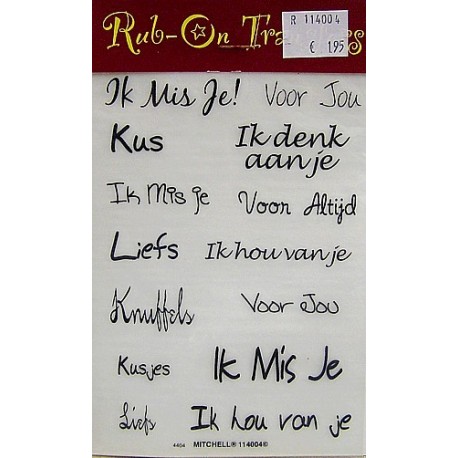 Rub-On
R 114004
€ 1.95
Ik Mis Je! Voor Jou
Kus Ik denk
aan je
Ik Mis je Voor Altijd
Liefs Ik hou van je
Knuffels Voor Jou
Kusjes Ik Mis Je
Liefs Ik hou van je
4404 MITCHELL® 114004©